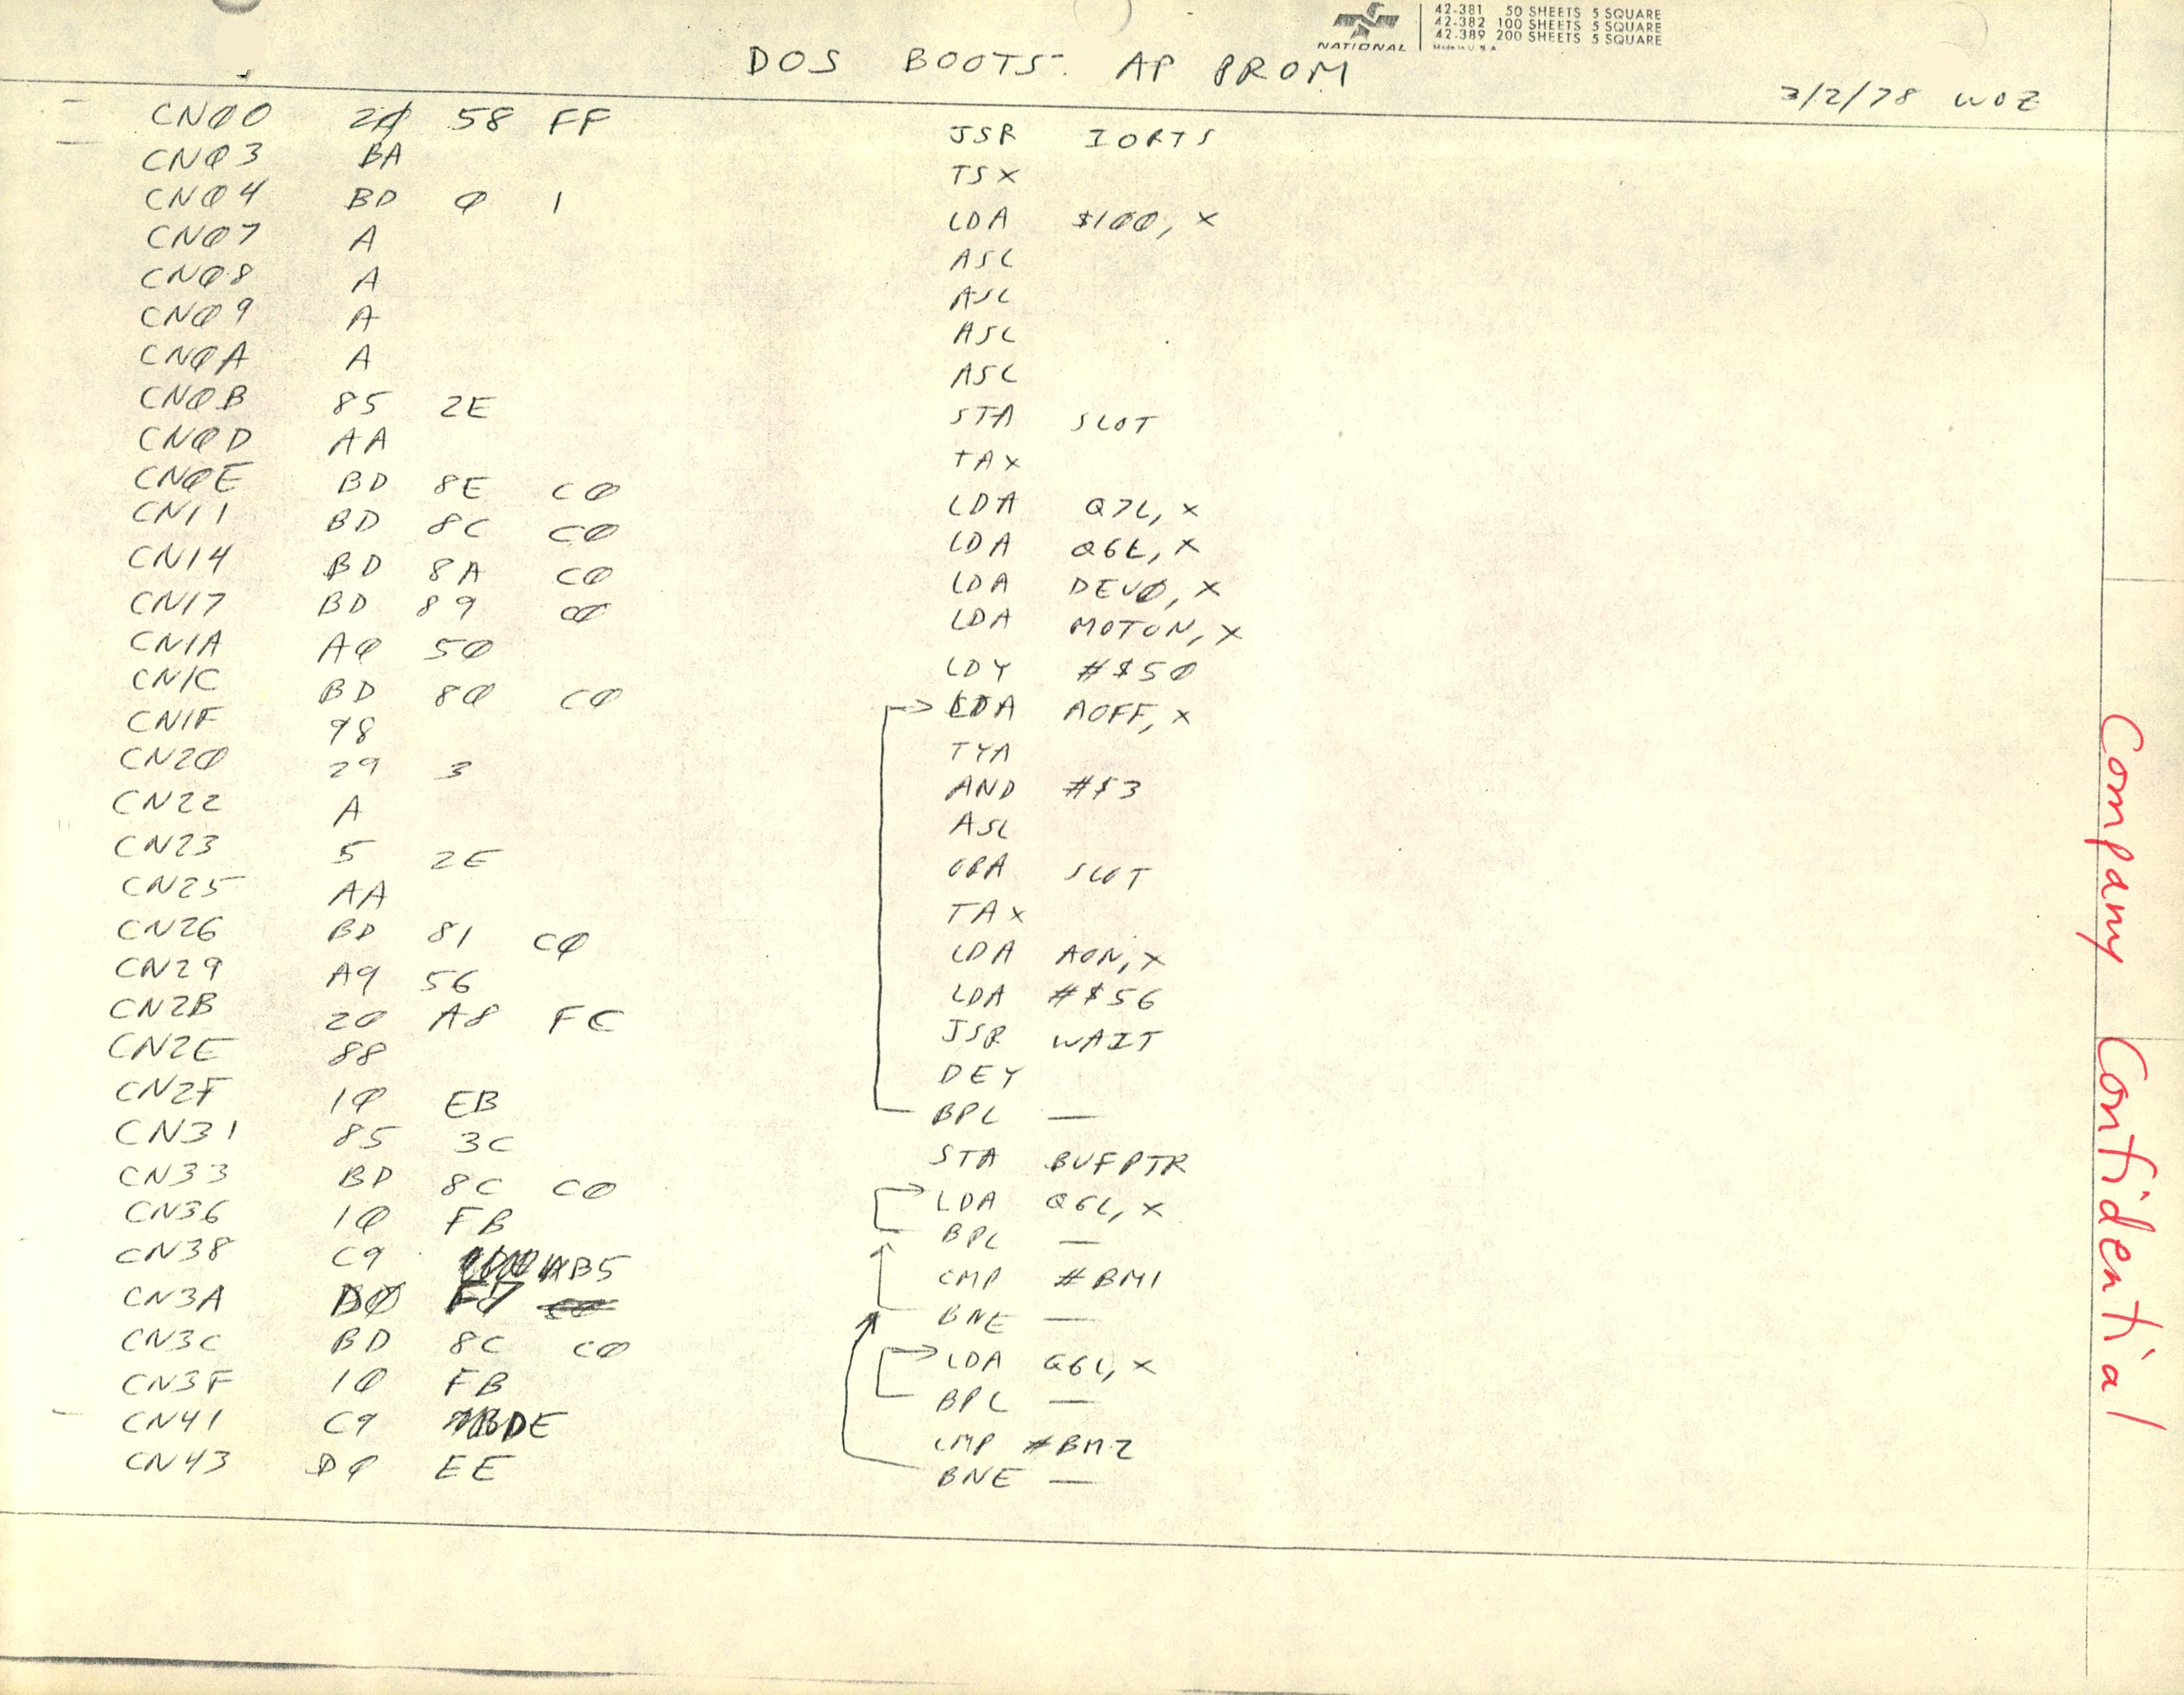 42-381 50 SHEETS 5 SQUARE
42-382 100 SHEETS 5 SQUARE
42-389 200 SHEETS 5 SQUARE
NATIONAL Made in U.S.A.
DOS BOOTS: AP PROM
3/2/78 WOZ
CN00 20 58 FF JSR IORTS
CN03 BA TSX
CN04 BD 0 1 LDA $100, X
CN07 A ASL
CN08 A ASL
CN09 A ASL
CN0A A ASL
CN0B 85 2E STA SLOT
CN0D AA TAX
CN0E BD 8E C0 LDA Q7L, X
CN11 BD 8C C0 LDA Q6L, X
CN14 BD 8A C0 LDA DEV0, X
CN17 BD 89 C0 LDA MOTON, X
CN1A A0 50 LDY #$50
CN1C BD 80 C0 LDA AOFF, X
CN1F 98 TYA
CN20 29 3 AND #$3
CN22 A ASL
CN23 5 2E ORA SLOT
CN25 AA TAX
CN26 BD 81 C0 LDA AON, X
CN29 A9 56 LDA #$56
CN2B 20 A8 FC JSR WAIT
CN2E 88 DEY
CN2F 10 EB BPL —
CN31 85 3C STA BUFPTR
CN33 BD 8C C0 LDA Q6L, X
CN36 10 FB BPL —
CN38 C9 B5 CMP #BM1
CN3A D0 F7 BNE —
CN3C BD 8C C0 LDA Q6L, X
CN3F 10 FB BPL —
CN41 C9 DE CMP #BM2
CN43 D0 EE BNE —
Company Confidential